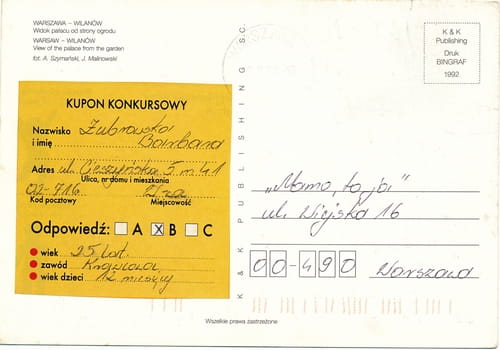 WARSZAWA – WILANÓW
Widok pałacu od strony ogrodu
WARSAW – WILANÓW
View of the palace from the garden
fot. A. Szymański, J. Malinowski
KUPON KONKURSOWY
Nazwisko Żubrowska
i imię Barbara
Adres ul. Cieszyńska 5 m. 41
Ulica, nr domu i mieszkania
02-716
Kod pocztowy Miejscowość
Odpowiedź: A X B C
wiek 25 lat
zawód Krawcowa
wiek dzieci 12 miesięcy
K & K PUBLISHING S.C.
WARSZAWA
K & K
Publishing
Druk
BINGRAF
1992
„Mamo, to ja"
ul. Wiejska 16
00-490 Warszawa
Wszelkie prawa zastrzeżone